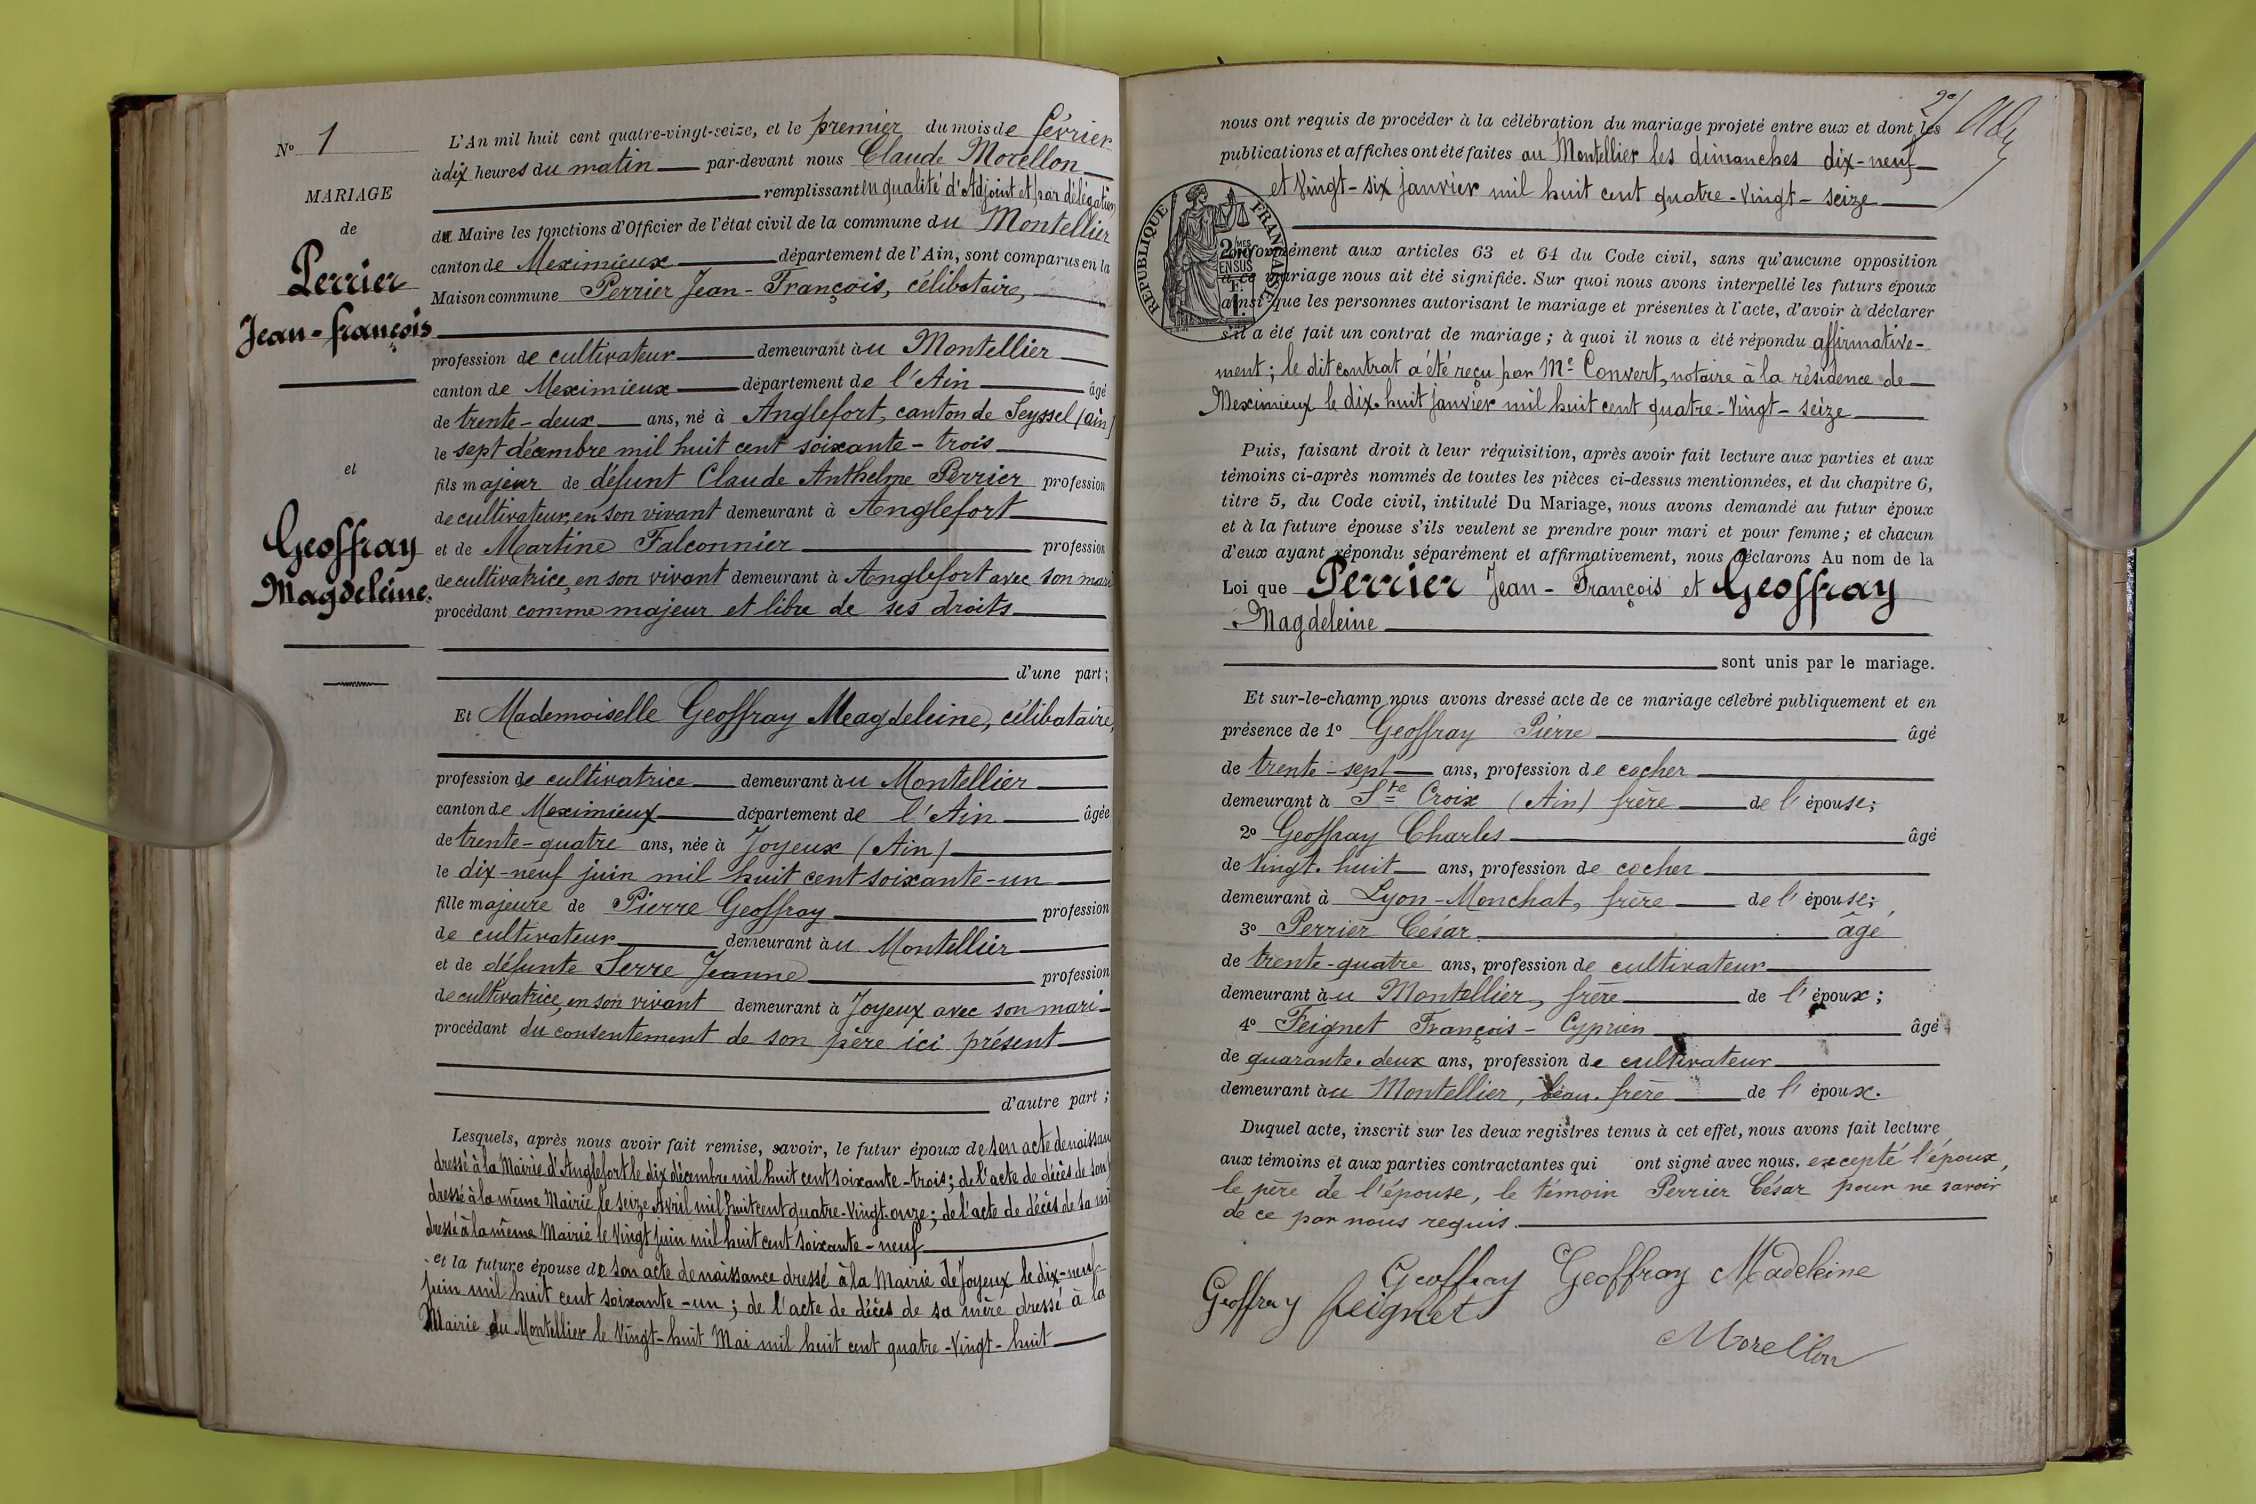 N° 1
MARIAGE
de
Perrier
Jean-françois
et
Geoffray
Magdeleine.
L'An mil huit cent quatre-vingt-seize, et le premier du mois de février
à dix heures du matin par-devant nous Claude Morellon
remplissant en qualité d'Adjoint et par délégation
du Maire les fonctions d'Officier de l'état civil de la commune du Montellier
canton de Meximieux département de l'Ain, sont comparus en la
Maison commune Perrier Jean-François, célibataire,
profession de cultivateur demeurant au Montellier
canton de Meximieux département de l'Ain âgé
de trente-deux ans, né à Anglefort, canton de Seyssel (ain)
le sept décembre mil huit cent soixante-trois
fils majeur de défunt Claude Anthelme Perrier profession
de cultivateur, en son vivant demeurant à Anglefort
et de Martine Falconnier profession
de cultivatrice, en son vivant demeurant à Anglefort avec son mari
procédant comme majeur et libre de ses droits
d'une part;
Et Mademoiselle Geoffray Magdeleine, célibataire,
profession de cultivatrice demeurant au Montellier
canton de Meximieux département de l'Ain âgée
de trente-quatre ans, née à Joyeux (Ain)
le dix-neuf juin mil huit cent soixante-un
fille majeure de Pierre Geoffray profession
de cultivateur demeurant au Montellier
et de défunte Serre Jeanne profession
de cultivatrice, en son vivant demeurant à Joyeux avec son mari
procédant du consentement de son père ici présent
d'autre part;
Lesquels, après nous avoir fait remise, savoir, le futur époux de son acte de naissan
dressé à la Mairie d'Anglefort le dix décembre mil huit cent soixante-trois; de l'acte de décès de son
dressé à la même Mairie le seize Avril mil huit cent quatre-vingt-onze; de l'acte de décès de sa
dressé à la même Mairie le Vingt juin mil huit cent soixante-neuf
et la future épouse de son acte de naissance dressé à la Mairie de Joyeux le dix-neuf
juin mil huit cent soixante-un; de l'acte de décès de sa mère dressé à la
Mairie du Montellier le Vingt-huit Mai mil huit cent quatre-Vingt-huit
2e/
nous ont requis de procéder à la célébration du mariage projeté entre eux et dont les
publications et affiches ont été faites au Montellier les dimanches dix-neuf
et Vingt-six janvier mil huit cent quatre-Vingt-seize
RÉPUBLIQUE FRANÇAISE
2MES
EN SUS
1F.
conformément aux articles 63 et 64 du Code civil, sans qu'aucune opposition
à ce mariage nous ait été signifiée. Sur quoi nous avons interpellé les futurs époux
ainsi que les personnes autorisant le mariage et présentes à l'acte, d'avoir à déclarer
s'il a été fait un contrat de mariage; à quoi il nous a été répondu affirmative-
ment; le dit contrat a été reçu par Me Convert, notaire à la résidence de
Meximieux le dix-huit janvier mil huit cent quatre-Vingt-seize
Puis, faisant droit à leur réquisition, après avoir fait lecture aux parties et aux
témoins ci-après nommés de toutes les pièces ci-dessus mentionnées, et du chapitre 6,
titre 5, du Code civil, intitulé Du Mariage, nous avons demandé au futur époux
et à la future épouse s'ils veulent se prendre pour mari et pour femme; et chacun
d'eux ayant répondu séparément et affirmativement, nous déclarons Au nom de la
Loi que Perrier Jean-François et Geoffray
Magdeleine
sont unis par le mariage.
Et sur-le-champ nous avons dressé acte de ce mariage célébré publiquement et en
présence de 1° Geoffray Pierre âgé
de trente-sept ans, profession de cocher
demeurant à Ste Croix (Ain) frère de l'épouse;
2° Geoffray Charles âgé
de Vingt-huit ans, profession de cocher
demeurant à Lyon-Monchat, frère de l'épouse;
3° Perrier César âgé
de trente-quatre ans, profession de cultivateur
demeurant au Montellier, frère de l'époux;
4° Feignet François-Cyprien âgé
de quarante-deux ans, profession de cultivateur
demeurant au Montellier, beau-frère de l'époux.
Duquel acte, inscrit sur les deux registres tenus à cet effet, nous avons fait lecture
aux témoins et aux parties contractantes qui ont signé avec nous, excepté l'époux,
le père de l'épouse, le témoin Perrier César pour ne savoir
de ce par nous requis.
Geoffray Geoffray Madeleine
Geoffray feignet
Morellon